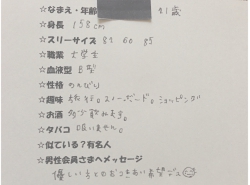 ☆なまえ・年齢 21歳
☆身長 158cm
☆スリーサイズ 82 60 85
☆職業 大学生
☆血液型 B型
☆性格 のんびり
☆趣味 スノーボード。ショッピング
☆お酒 多少飲れます。
☆タバコ 吸いません。
☆似ている?有名人
☆男性会員さまへメッセージ
優しい方とのおつきあい希望デス